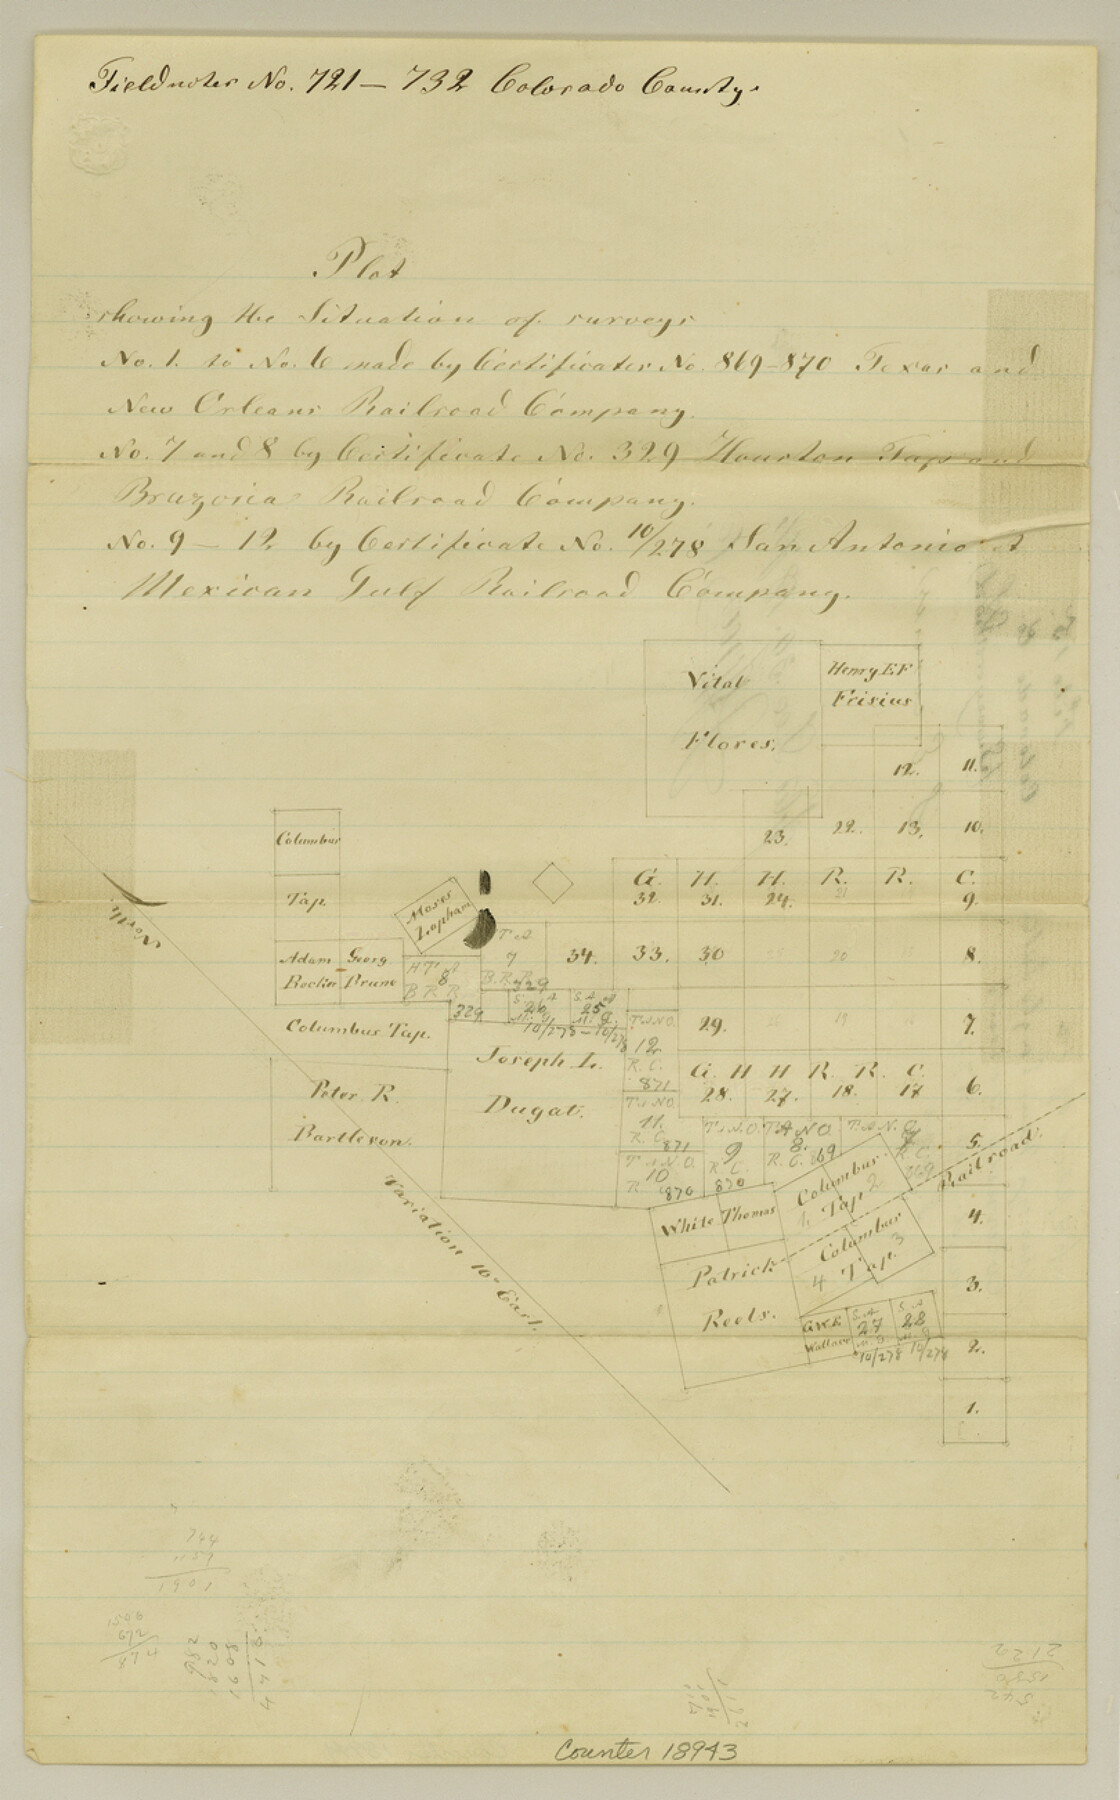 Fieldnotes No. 721 — 732 Colorado County.
Plot
showing the Situation of surveys
No. 1. to No. 6 made by Certificates No. 869-870 Texas and
New Orleans Railroad Company.
No. 7 and 8 by Certificate No. 329 Houston Tap and
Brazoria Railroad Company.
No. 9 — 12 by Certificate No. 10/278 San Antonio et
Mexican Gulf Railroad Company.
Vital
Flores.
Henry E F
Frisius
12. 11.
23. 22. 13. 10.
G. H. H. R. R. C.
32. 31. 24. 21 9.
34. 33. 30 20 8.
29. 19 7.
G. H H R. R. C.
28. 27. 18. 17 6.
5.
4.
3.
2.
1.
Columbus
Tap.
Adam Georg
Prune
Columbus Tap.
Peter R.
Bartleson.
Moses
Lapham
T. A
7
B. R. R.
329
H T A
8
B R R
329
S. A
26
M. G.
10/278
S. A
25
M. G.
10/278
Joseph L.
Dugat.
T. & N.O.
12
R. C.
871
T. & N.O.
11.
R. C.
871
T. & N.O.
10
R. C.
870
T. & N.O.
9
R. C.
870
T. & N O.
8.
R. C. 869
T. & N. O.
7
R. C.
869
White Thomas
Patrick
Reels.
Columbus
1 Tap 2
Columbus
4 Tap. 3
Railroad.
G.W.E
Wallace
S. A
27
M. G.
10/278
S. A
28
M. G
10/278
North.
Variation 10° East.
744
1157
1901
1546
672
874
982
1820
1608
4410
2122
1580
542
Counter 18943